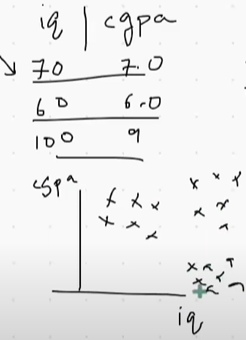 iq | cgpa
70 7.0
60 6.0
100 9
cgpa
iq